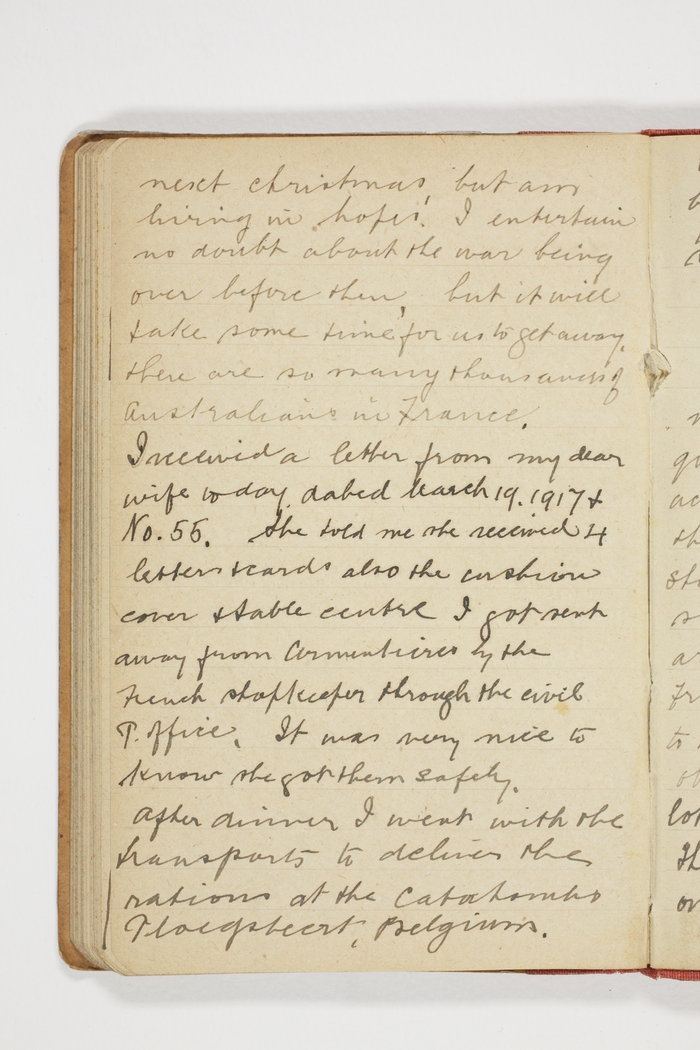 next christmas, but am
living in hopes. I entertain
no doubt about the war being
over before then, but it will
take some time for us to get away,
there are so many thousands of
Australians in France.
I received a letter from my dear
wife today, dated March 19. 1917 &
No. 55. She told me she received 4
letters & cards also the cushion
cover & table centre I got sent
away from Armentieres by the
French shopkeeper through the civil
P. office. It was very nice to
know she got them safely.
After dinner I went with the
transports to deliver the
rations at the Catachombs
Ploegsteert, Belgium.